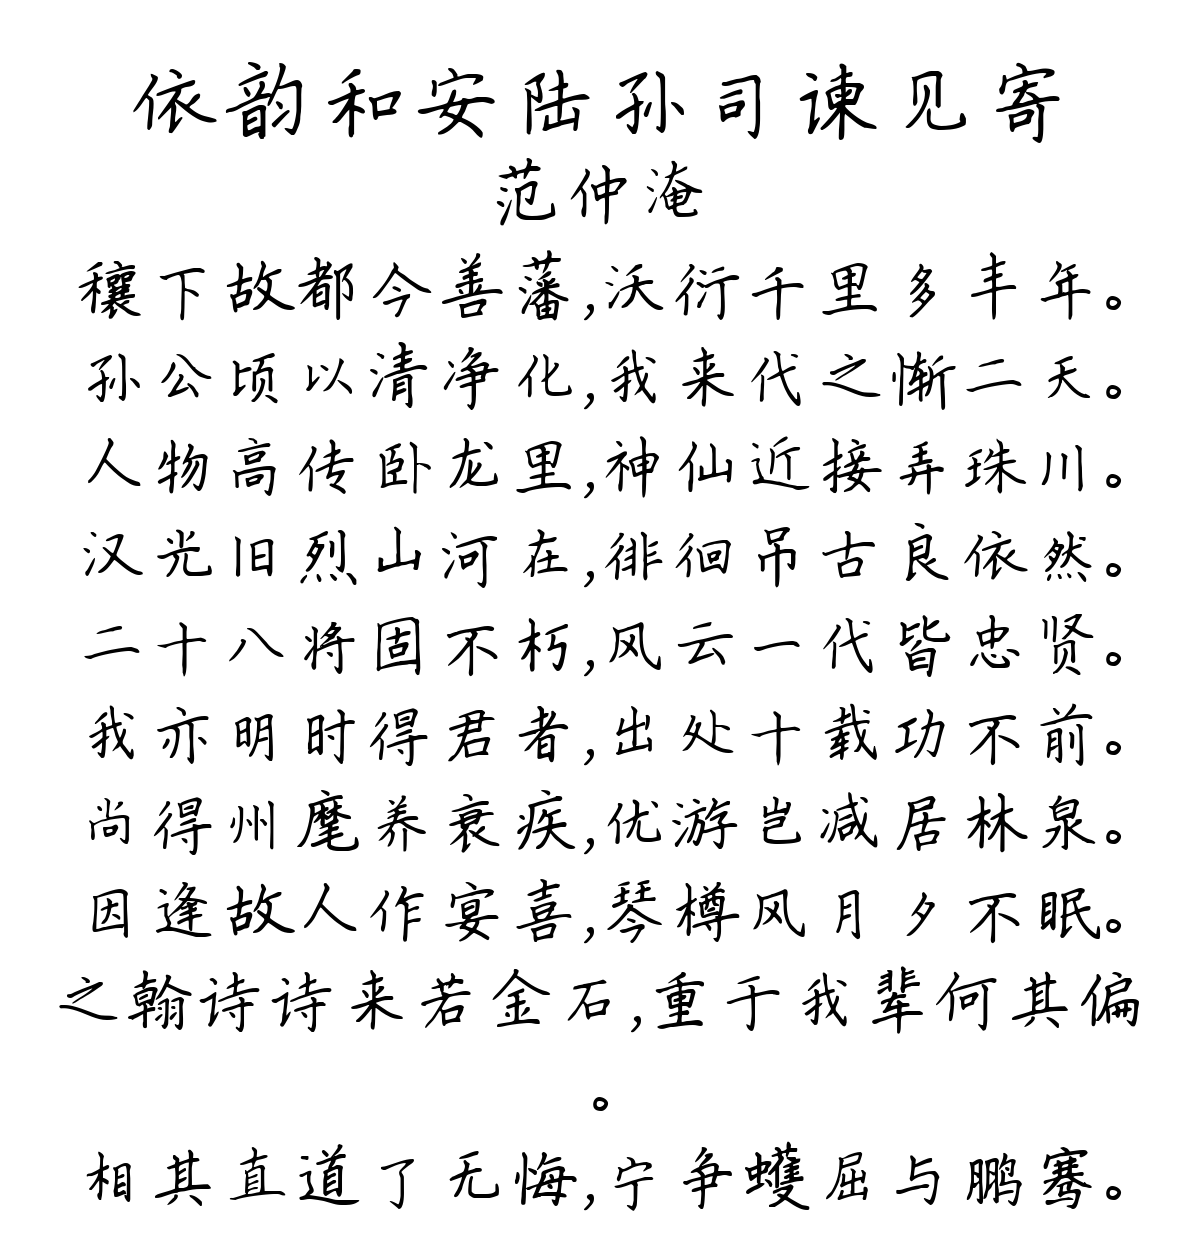 依韵和安陆孙司谏见寄
范仲淹
穰下故都今善藩,沃衍千里多丰年。
孙公顷以清净化,我来代之惭二天。
人物高传卧龙里,神仙近接弄珠川。
汉光旧烈山河在,徘徊吊古良依然。
二十八将固不朽,风云一代皆忠贤。
我亦明时得君者,出处十载功不前。
尚得州麾养衰疾,优游岂减居林泉。
因逢故人作宴喜,琴樽风月夕不眠。
之翰诗诗来若金石,重于我辈何其偏
。
相其直道了无悔,宁争蠖屈与鹏骞。